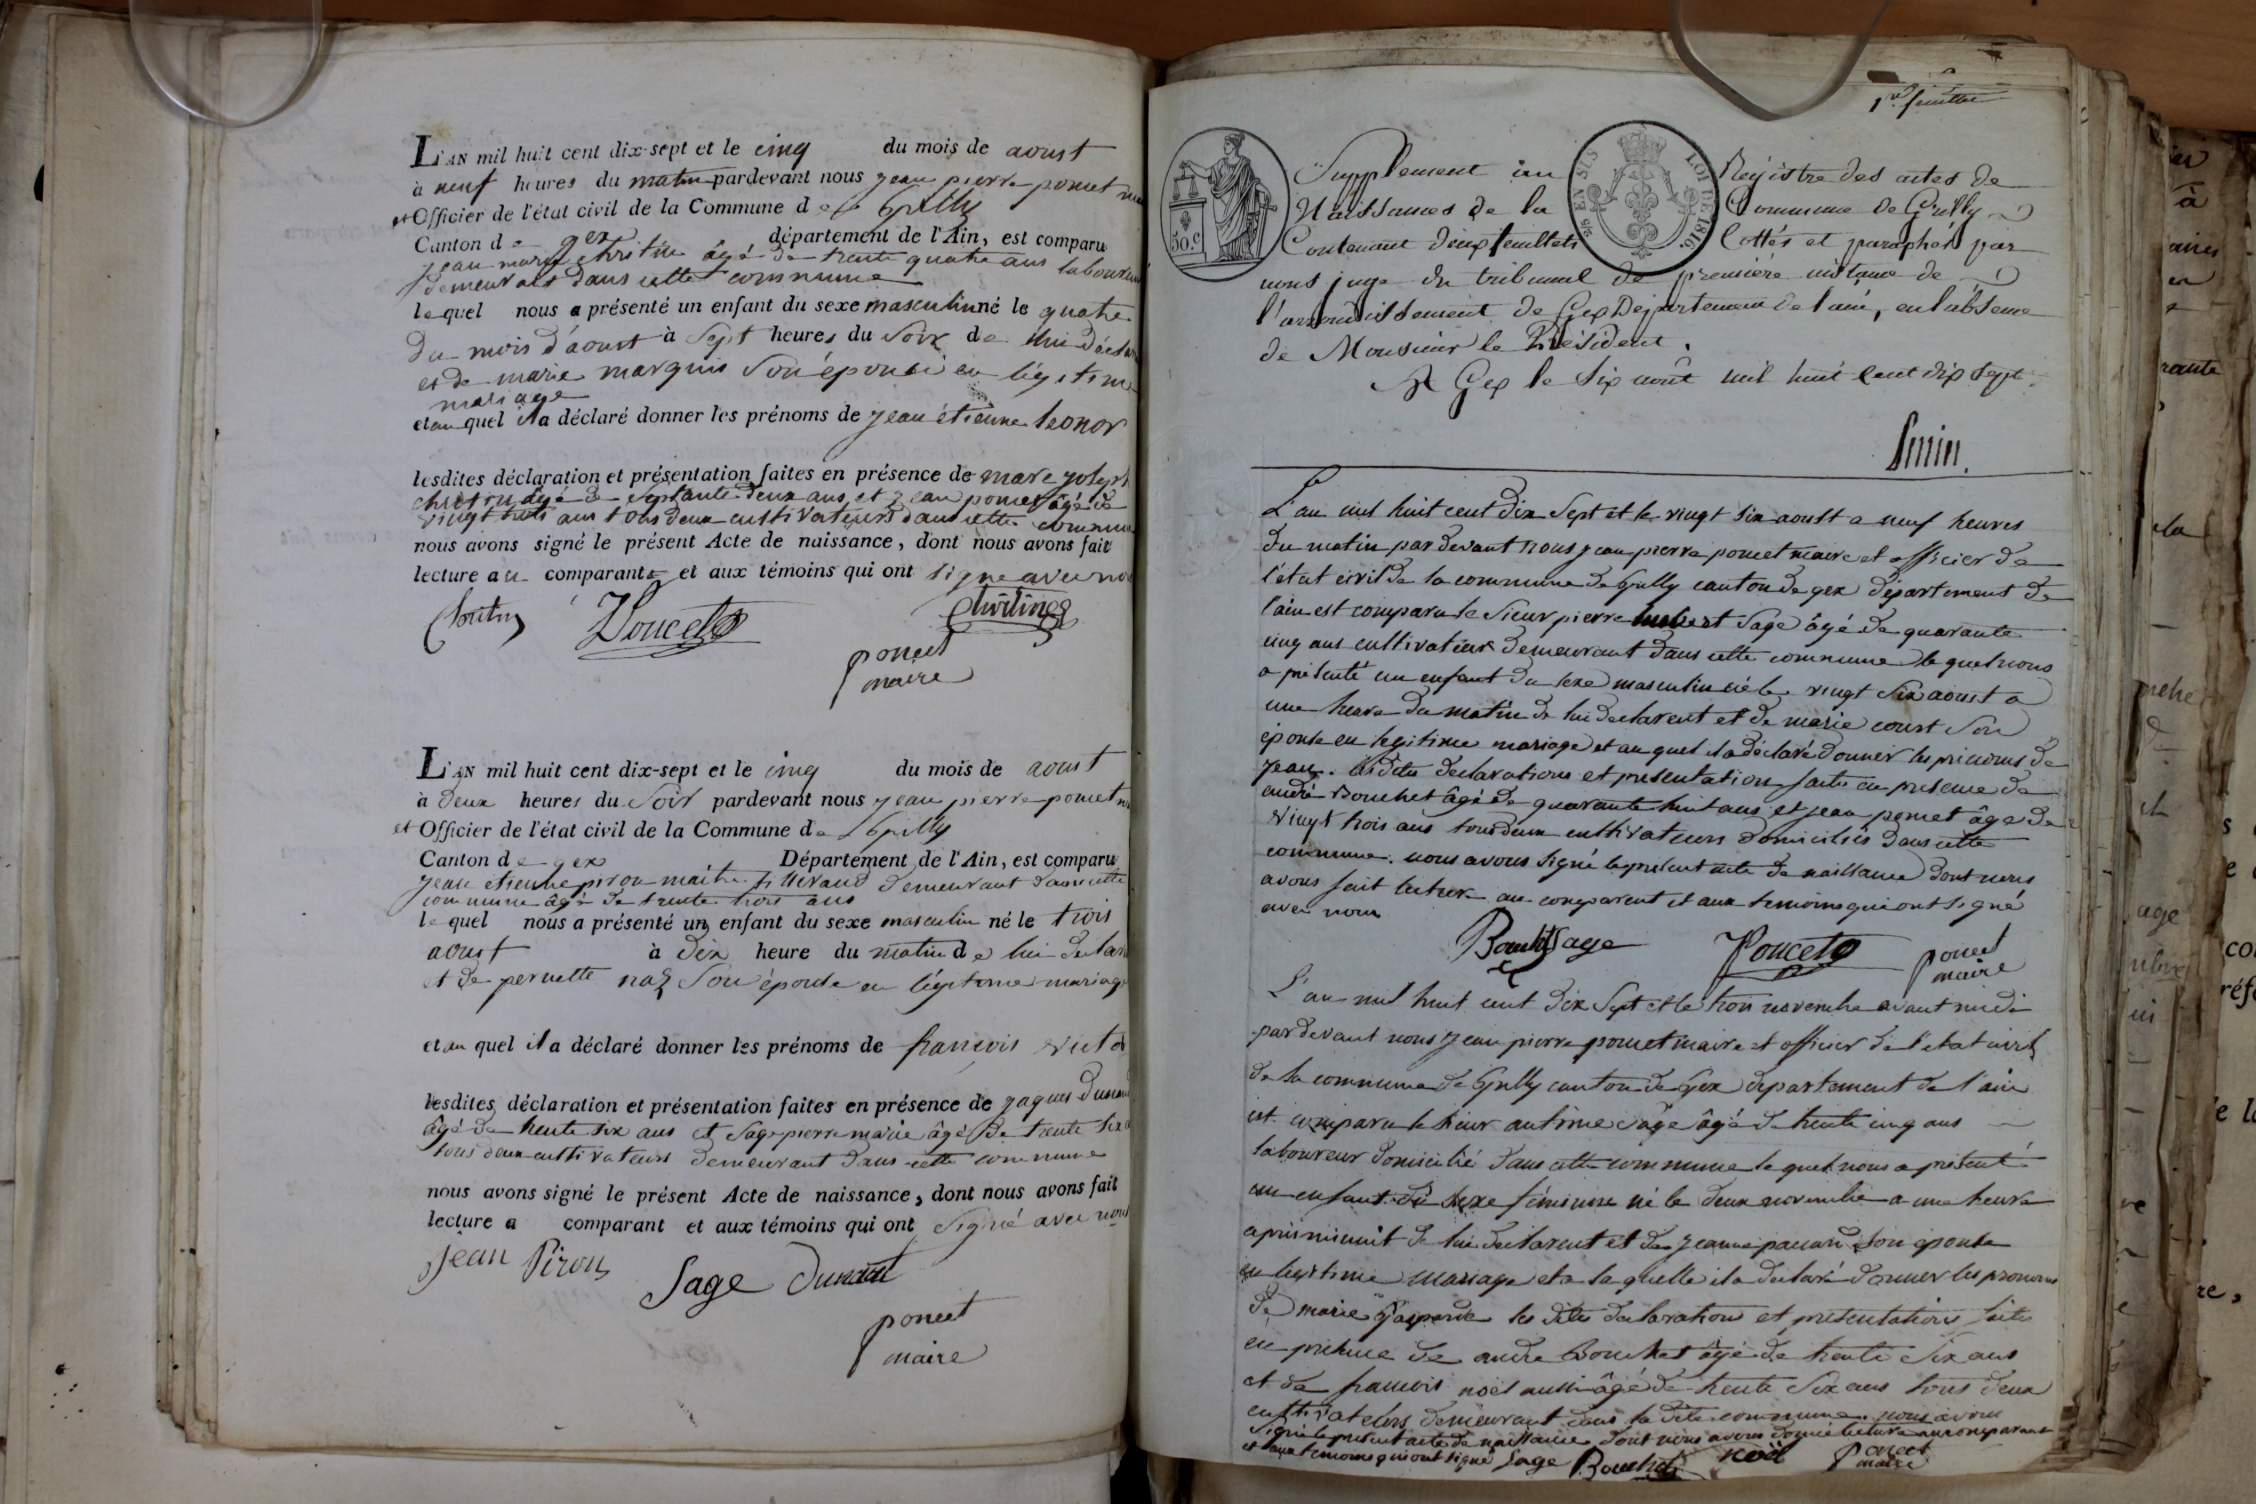 L'AN mil huit cent dix-sept et le cinq du mois de aoust
à neuf heures du matin pardevant nous jean pierre poncet
et Officier de l'état civil de la Commune de Grilly
Canton de gex département de l'Ain, est comparu
jean marie âgé de trente quatre ans
demeurant dans cette commune
lequel nous a présenté un enfant du sexe masculin né le quatre
du mois d'aoust à sept heures du soir de lui
et de marie marquis son épouse en légitime
mariage
et au quel il a déclaré donner les prénoms de jean étienne leonor
lesdites déclaration et présentation faites en présence de marc
âgé de septante deux ans et jean poncet âgé de
vingt trois ans tous deux cultivateurs dans cette
nous avons signé le présent Acte de naissance, dont nous avons fait
lecture au comparant et aux témoins qui ont signe avec
Poncet
poncet
maire
L'AN mil huit cent dix-sept et le cinq du mois de aoust
à deux heures du soir pardevant nous jean pierre poncet
et Officier de l'état civil de la Commune de Grilly
Canton de gex Département de l'Ain, est comparu
jean etienne piron demeurant dans cette
commune âgé de trente trois ans
lequel nous a présenté un enfant du sexe masculin né le trois
aoust à dix heure du matin de lui
et de pernette naz son épouse en légitime mariage
et au quel il a déclaré donner les prénoms de françois
lesdites déclaration et présentation faites en présence de jaques
âgé de trente six ans et sage pierre marie âgé de trente
tous deux cultivateurs demeurant dans cette commune
nous avons signé le présent Acte de naissance, dont nous avons fait
lecture a comparant et aux témoins qui ont signé avec nous
Jean Piron
Sage Dunand
poncet
maire
1er feuillet
50.c
EN SUS
LOI DE 1816.
Supplement au Régistre des actes de
Naissances de la Commune de Grilly
Contenant deux feuillets Cottés et paraphés par
nous juge du tribunal de première instance de
l'arrondissement de Gex Departement de l'ain, en l'absence
de Monsieur le Président.
A Gex le six août mil huit cent dix sept.
L'an mil huit cent dix sept et le vingt six aoust a neuf heures
du matin par devant nous jean pierre poncet maire et officier de
l'état civil de la commune de Grilly canton de gex département de
l'ain est comparu le sieur pierre sage âgé de quarante
cinq ans cultivateur demeurant dans cette commune le quel nous
a présenté un enfant du sexe masculin né le vingt six aoust a
une heure du matin de lui declarent et de marie court son
épouse en legitime mariage et au quel il a déclaré donner les prenoms de
jean. les dites declarations et presentation faites en presence de
andré Bouchet âgé de quarante huit ans et jean poncet âge de
vingt trois ans tous deux cultivateurs domiciliés dans cette
commune. nous avons signé le present acte de naissance dont nous
avons fait lecture au comparent et aux temoins qui ont signé
avec nous
Sage Poncet poncet
maire
L'an mil huit cent dix sept et le trois novembre avant midi
par devant nous jean pierre poncet maire et officier de l'etat civil
de la commune de Grilly canton de Gex departement de l'ain
est comparu le sieur sage âgé de trente cinq ans
laboureur domicilié dans cette commune le quel nous a présenté
un enfant du sexe féminin né le deux novembre a une heure
apres minuit de lui declarent et de jeanne son épouse
en legitime mariage et a la quelle il a declaré donner les prenoms
de marie les dites declarations et presentations faites
en présence de andre Bouchet âgé de trente six ans
et de francois noel aussi âgé de trente six ans tous deux
cultivateurs demeurant dans la dite commune. nous avons
signé le present acte de naissance dont nous avons donné lecture au comparant
et aux temoins qui ont signé Sage Bouchet noël poncet
maire